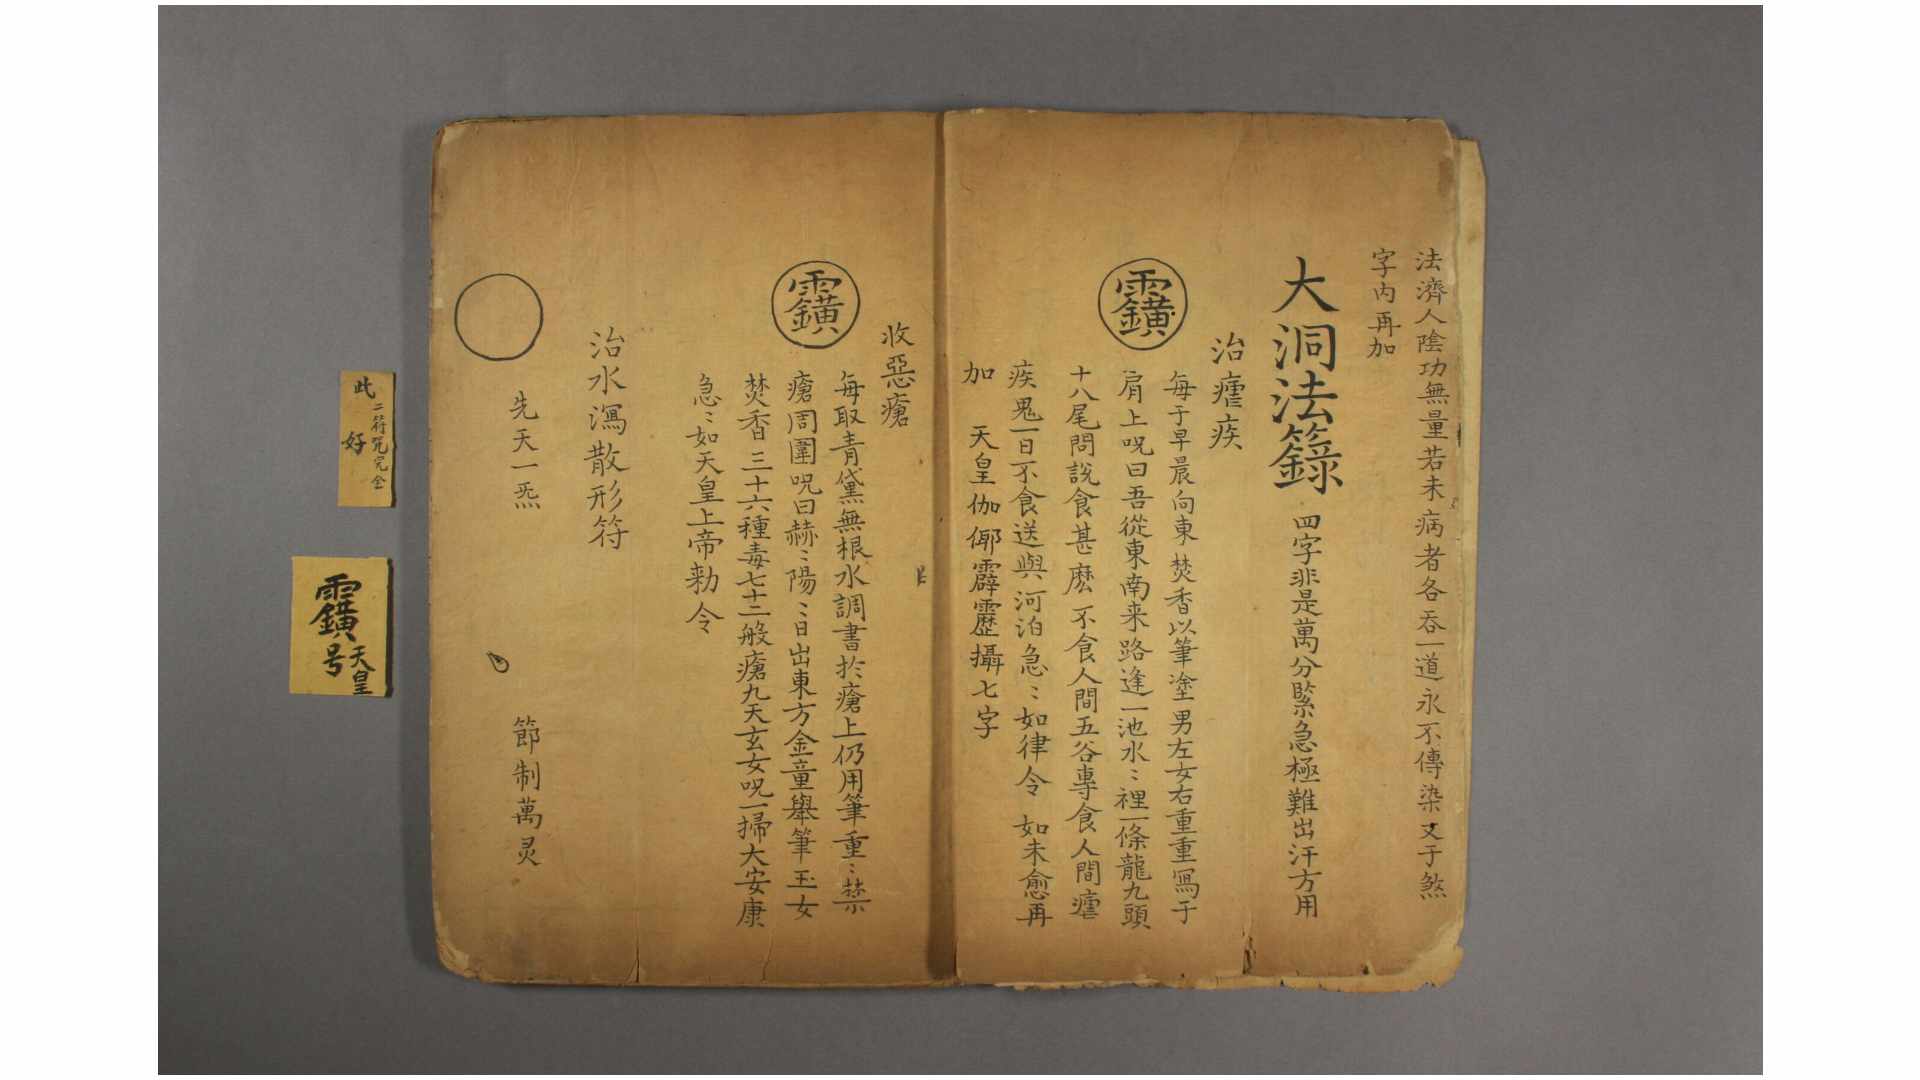 法濟人陰功無量若未病者各吞一道永不傳染又于煞
字内再加
大洞法籙 四字非是萬分緊急極難出汗方用
治瘧疾
每于早晨向東焚香以筆塗男左女右重重寫于
肩上呪曰吾從東南来路逢一池水〻裡一條龍九頭
十八尾問說食甚麽不食人間五谷專食人間瘧
疾鬼一日不食送與河泊急〻如律令 如未愈再
加 天皇伽倻霹靂攝七字
收惡瘡
每取青黛無根水調書於瘡上仍用筆重〻禁
瘡周圍呪曰赫〻陽〻日出東方金童舉筆玉女
焚香三十六種毒七十二般瘡九天玄女呪一掃大安康
急〻如天皇上帝勅令
治水瀉散形符
先天一炁 節制萬灵
此二符咒完全
好
天皇
号